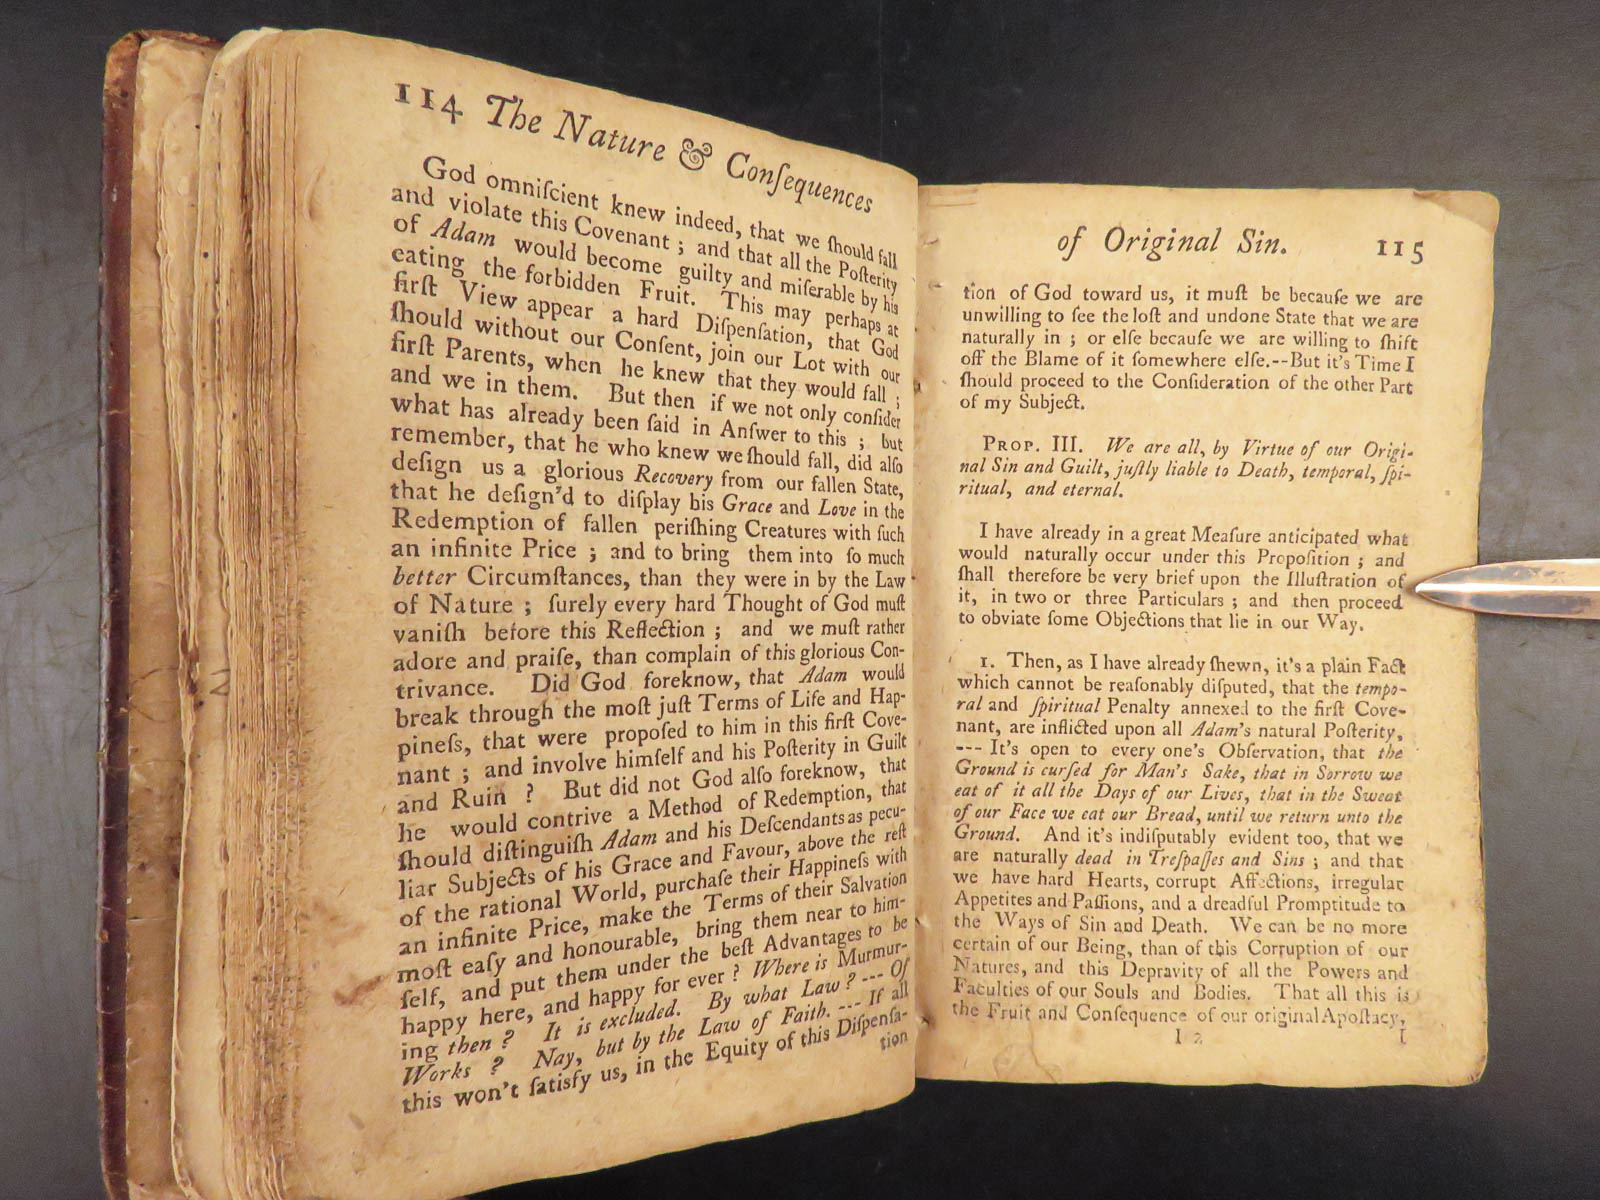 114 The Nature & Conſequences
God omniſcient knew indeed, that we ſhould fall
and violate this Covenant ; and that all the Poſterity
of Adam would become guilty and miſerable by his
eating the forbidden Fruit. This may perhaps at
firſt View appear a hard Diſpenſation, that God
ſhould without our Conſent, join our Lot with our
firſt Parents, when he knew that they would fall ;
and we in them. But then if we not only conſider
what has already been ſaid in Anſwer to this ; but
remember, that he who knew we ſhould fall, did alſo
deſign us a glorious Recovery from our fallen State,
that he deſign'd to diſplay his Grace and Love in the
Redemption of fallen periſhing Creatures with ſuch
an infinite Price ; and to bring them into ſo much
better Circumſtances, than they were in by the Law
of Nature ; ſurely every hard Thought of God muſt
vaniſh before this Reflection ; and we muſt rather
adore and praiſe, than complain of this glorious Con-
trivance. Did God foreknow, that Adam would
break through the moſt juſt Terms of Life and Hap-
pineſs, that were propoſed to him in this firſt Cove-
nant ; and involve himſelf and his Poſterity in Guilt
and Ruin ? But did not God alſo foreknow, that
he would contrive a Method of Redemption, that
ſhould diſtinguiſh Adam and his Deſcendants as pecu-
liar Subjects of his Grace and Favour, above the reſt
of the rational World, purchaſe their Happineſs with
an infinite Price, make the Terms of their Salvation
moſt eaſy and honourable, bring them near to him-
ſelf, and put them under the beſt Advantages to be
happy here, and happy for ever ? Where is Murmur-
ing then ? It is excluded. By what Law ? --- Of
Works ? Nay, but by the Law of Faith. --- If all
this won't ſatisfy us, in the Equity of this Diſpenſa-
tion
of Original Sin. 115
tion of God toward us, it muſt be becauſe we are
unwilling to ſee the loſt and undone State that we are
naturally in ; or elſe becauſe we are willing to ſhift
off the Blame of it ſomewhere elſe.--But it's Time I
ſhould proceed to the Conſideration of the other Part
of my Subject.
PROP. III. We are all, by Virtue of our Origi-
nal Sin and Guilt, juſtly liable to Death, temporal, ſpi-
ritual, and eternal.
I have already in a great Meaſure anticipated what
would naturally occur under this Propoſition ; and
ſhall therefore be very brief upon the Illuſtration of
it, in two or three Particulars ; and then proceed
to obviate ſome Objections that lie in our Way.
1. Then, as I have already ſhewn, it's a plain Fact
which cannot be reaſonably diſputed, that the tempo-
ral and ſpiritual Penalty annexed to the firſt Cove-
nant, are inflicted upon all Adam's natural Poſterity,
--- It's open to every one's Obſervation, that the
Ground is curſed for Man's Sake, that in Sorrow we
eat of it all the Days of our Lives, that in the Sweat
of our Face we eat our Bread, until we return unto the
Ground. And it's indiſputably evident too, that we
are naturally dead in Treſpaſſes and Sins ; and that
we have hard Hearts, corrupt Affections, irregular
Appetites and Paſſions, and a dreadful Promptitude to
the Ways of Sin and Death. We can be no more
certain of our Being, than of this Corruption of our
Natures, and this Depravity of all the Powers and
Faculties of our Souls and Bodies. That all this is
the Fruit and Conſequence of our original Apoſtacy,
I 2 I